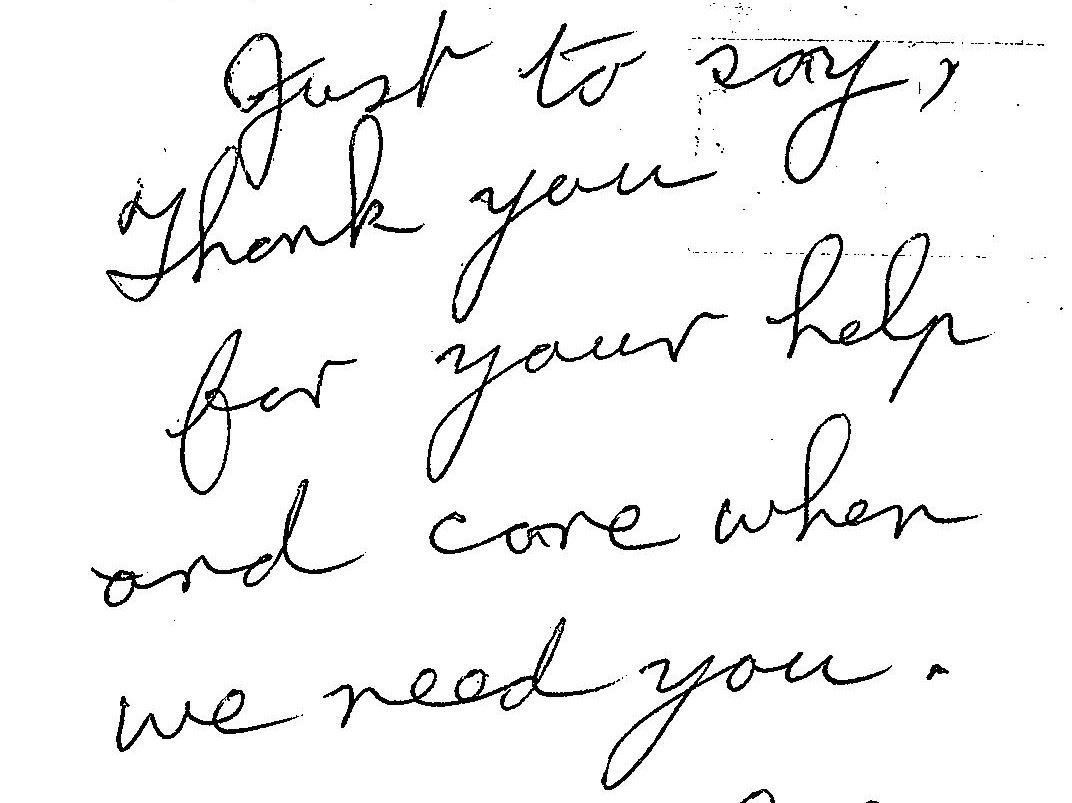 Just to say,
Thank you
for your help
and care when
we need you.